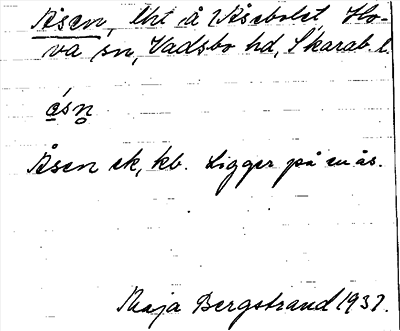 Åsen, lht å Åsebolet, Ho-
va sn, Vadsbo hd, Skarab. l.
ásn̥
Åsen ek, kb. Ligger på en ås.
Maja Bergstrand 1937.